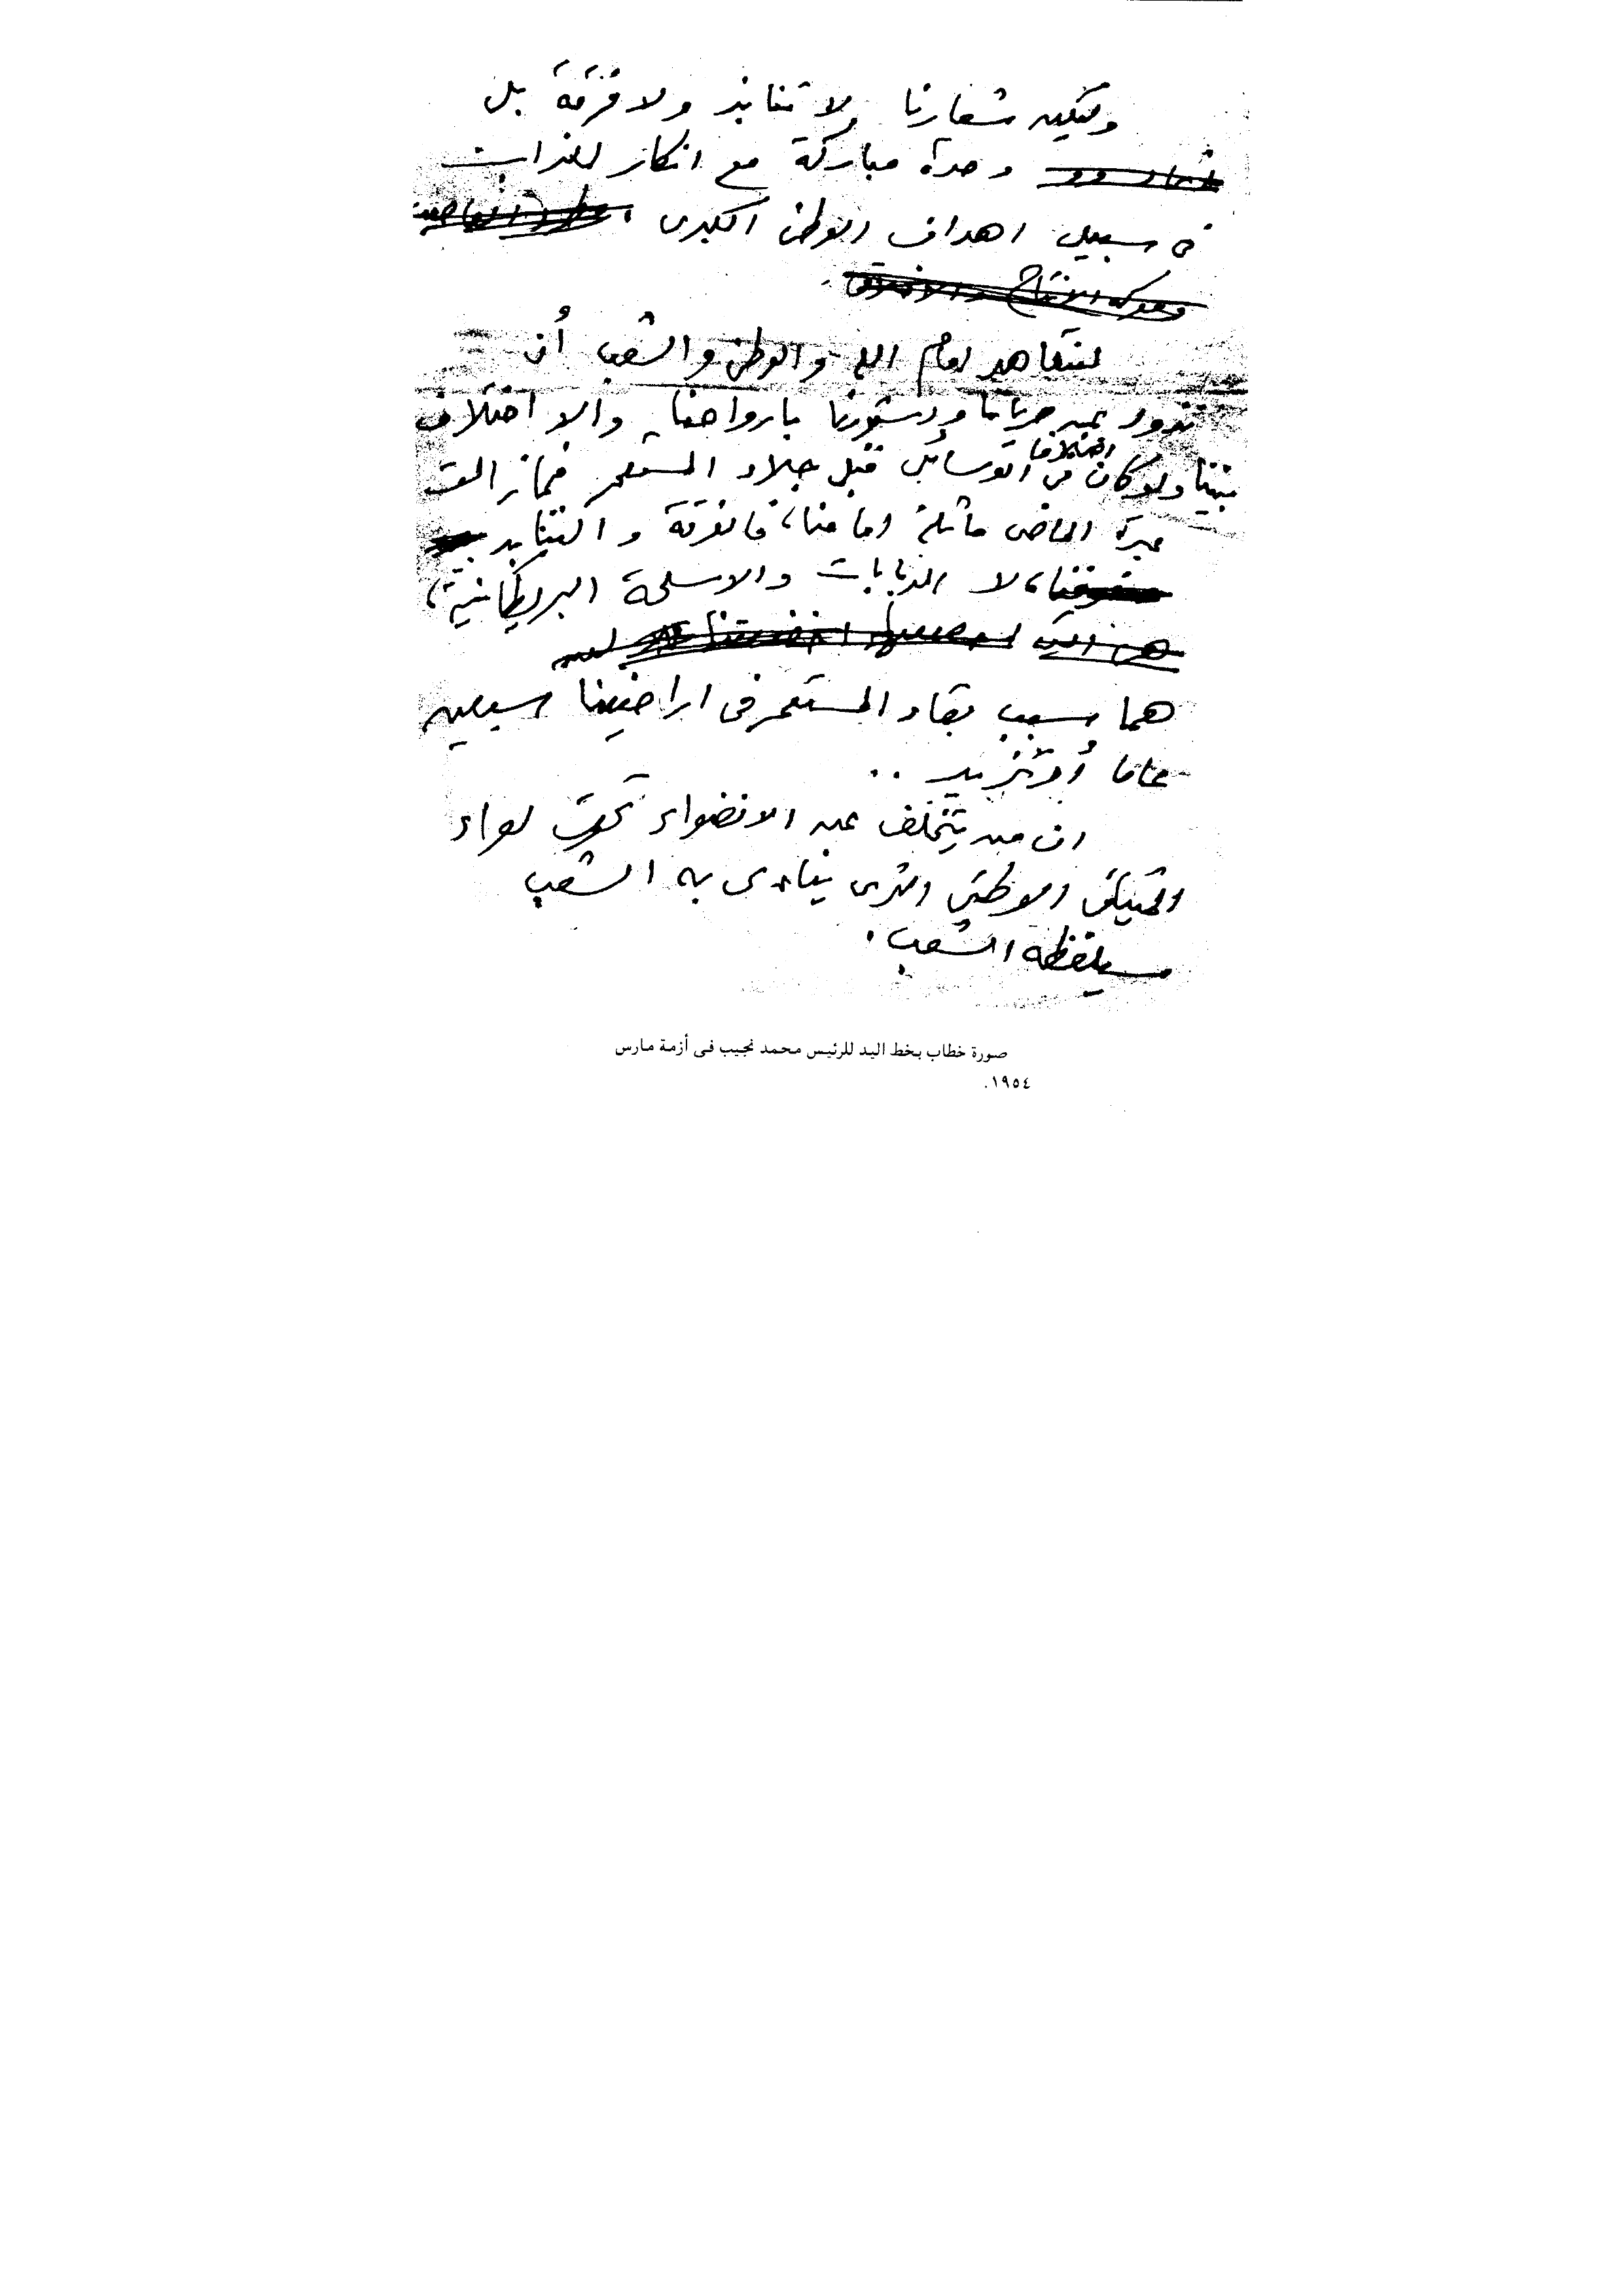 وليكن شعارنا ولا تنابذ ولا فرقة بل
وحدة مباركة مع انكار للذات
فى سبيل اهداف الوطن الكبرى .
لنتعاهد امام الله والوطن والشعب أن
نذود عن حرياتنا ودستورنا بارواحنا، وألا اختلاف
اختلافا
بيننا ولو كان فى الوسائل قبل جلاء المستعمر فمازالت
عبرة الماضى ماثلة امامنا، فالفرقة والتنابذ
لا الدبابات والاسلحة البريطانية،
هما سبب بقاء المستعمر فى اراضينا سبعين
عاما أو تزيد ..
ان من يتخلف عن الانضواء تحت لواء
الميثاق الوطنى الذى ينادى به الشعب
سيلفظه الشعب .
صورة خطاب بخط اليد للرئيس محمد نجيب فى أزمة مارس
١٩٥٤.